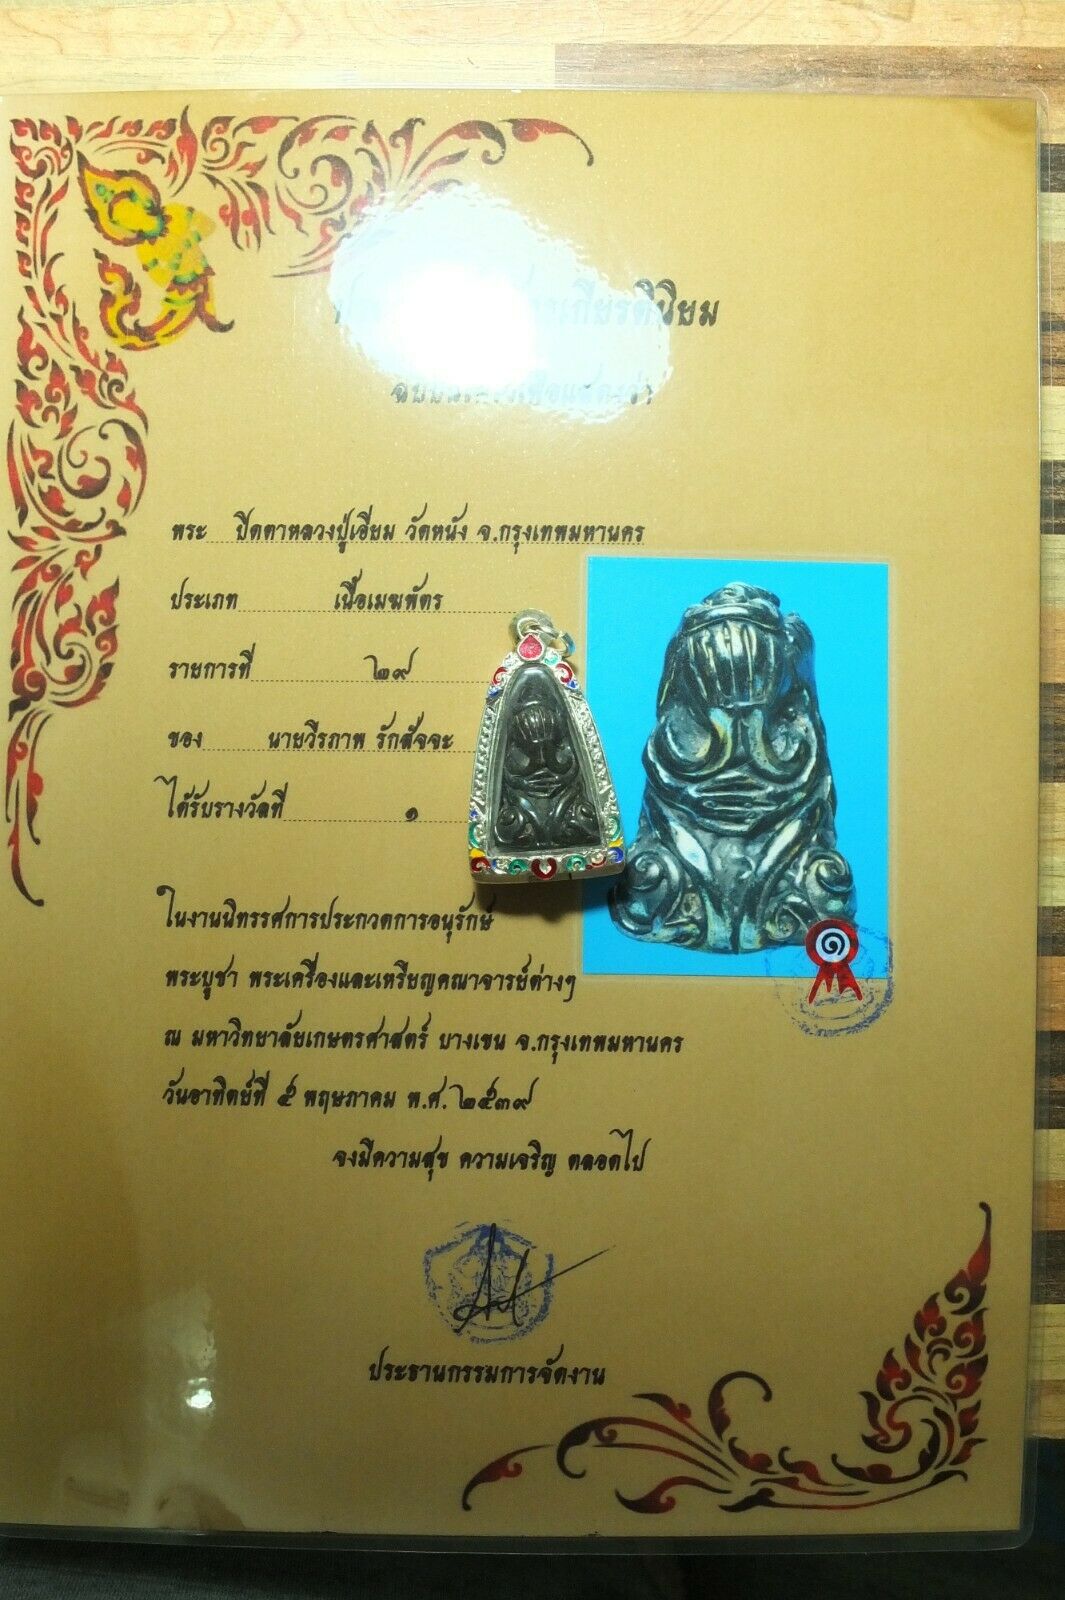 ฉบับนี้ให้ไว้เพื่อแสดงว่า
พระ ปิดตาหลวงปู่เอี่ยม วัดหนัง จ.กรุงเทพมหานคร
ประเภท เนื้อเมฆพัตร
รายการที่ ๒๙
ของ นายวีรภาพ รักสัจจะ
ได้รับรางวัลที่ ๑
ในงานนิทรรศการประกวดการอนุรักษ์
พระบูชา พระเครื่องและเหรียญคณาจารย์ต่างๆ
ณ มหาวิทยาลัยเกษตรศาสตร์ บางเขน จ.กรุงเทพมหานคร
วันอาทิตย์ที่ ๕ พฤษภาคม พ.ศ. ๒๕๓๙
จงมีความสุข ความเจริญ ตลอดไป
ประธานกรรมการจัดงาน
๑